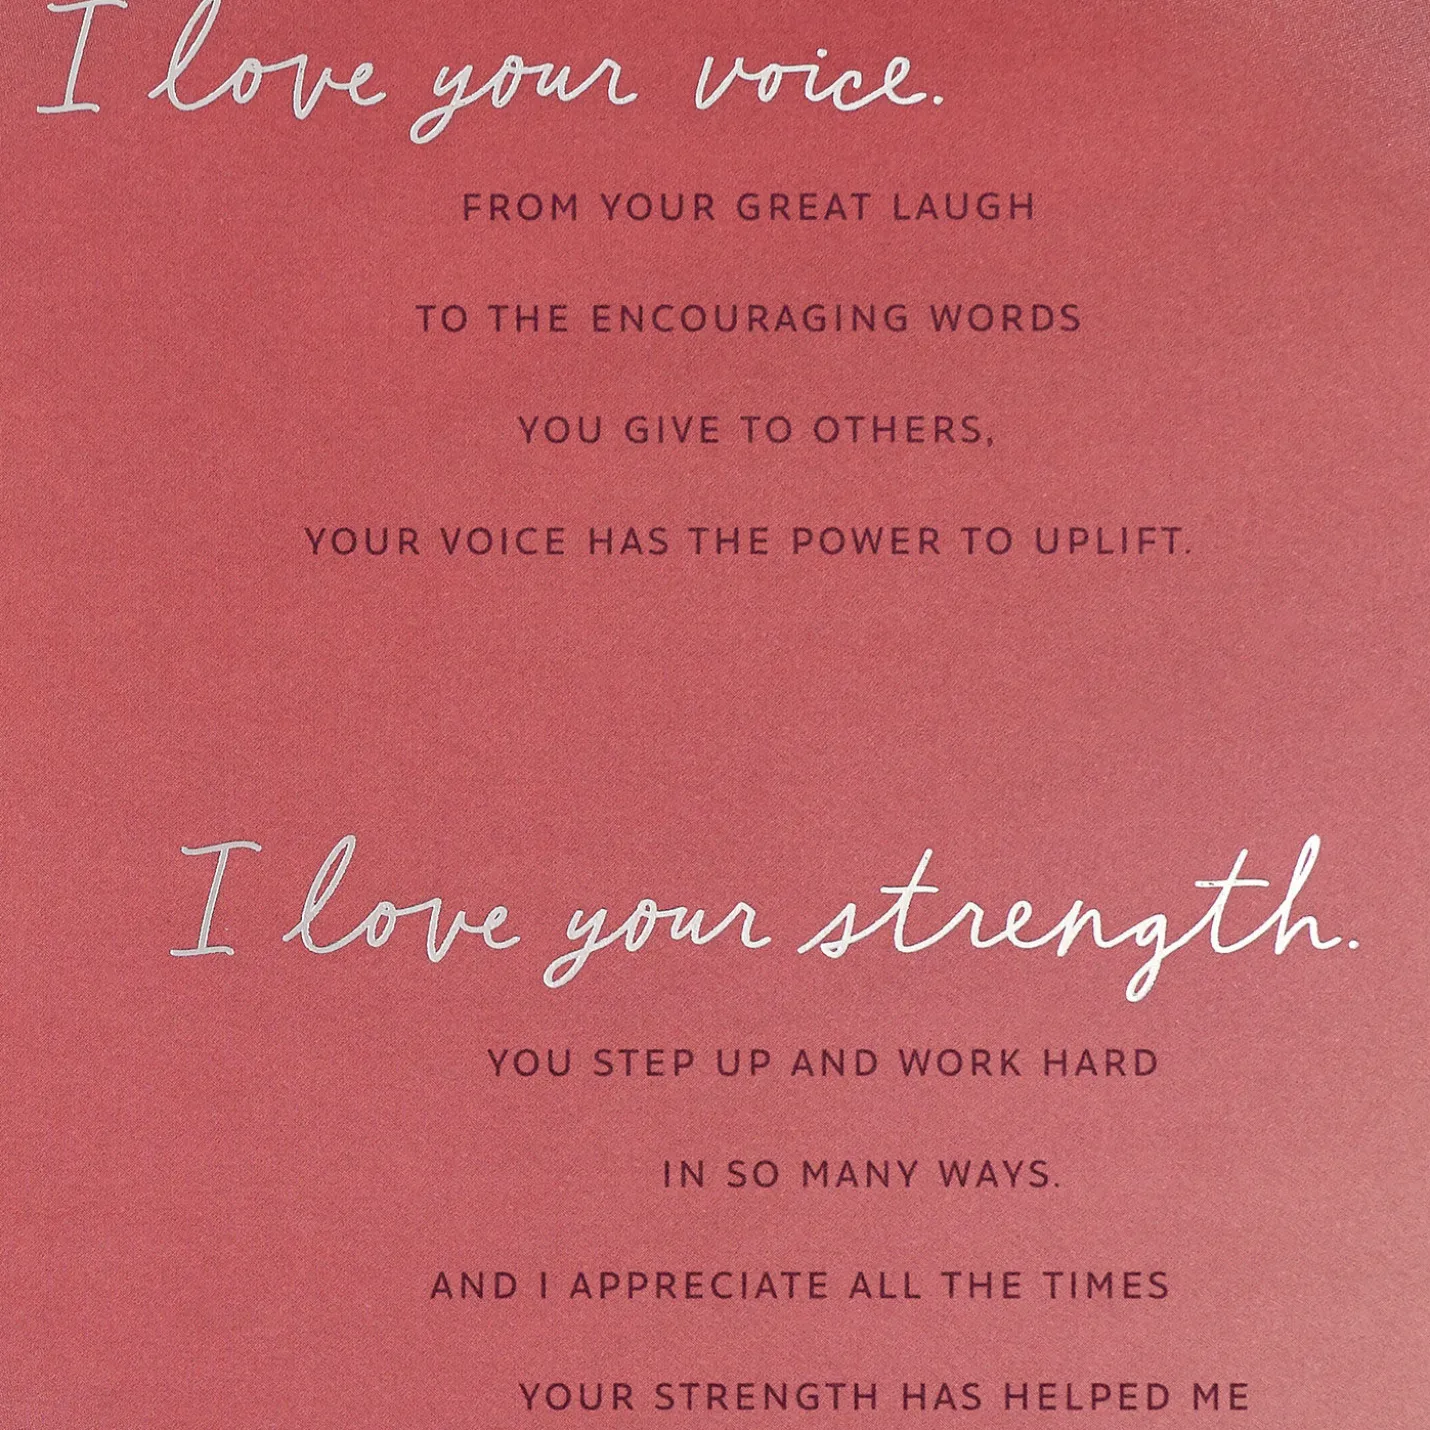 I love your voice.
FROM YOUR GREAT LAUGH
TO THE ENCOURAGING WORDS
YOU GIVE TO OTHERS,
YOUR VOICE HAS THE POWER TO UPLIFT.
I love your strength.
YOU STEP UP AND WORK HARD
IN SO MANY WAYS.
AND I APPRECIATE ALL THE TIMES
YOUR STRENGTH HAS HELPED ME